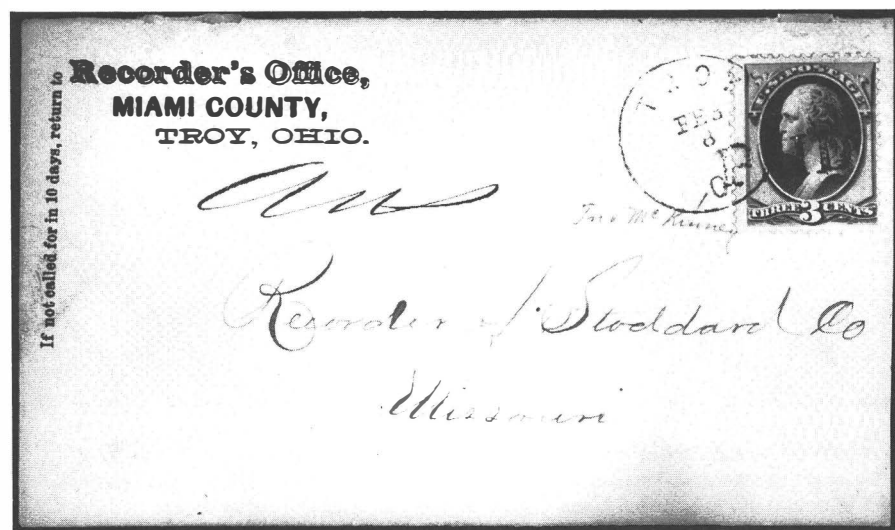 If not called for in 10 days, return to
Recorder's Office,
MIAMI COUNTY,
TROY, OHIO.
TROY
FEB
8
U.S. POSTAGE
THREE 3 CENTS
McKinney
Recorder of Stoddard Co
Missouri